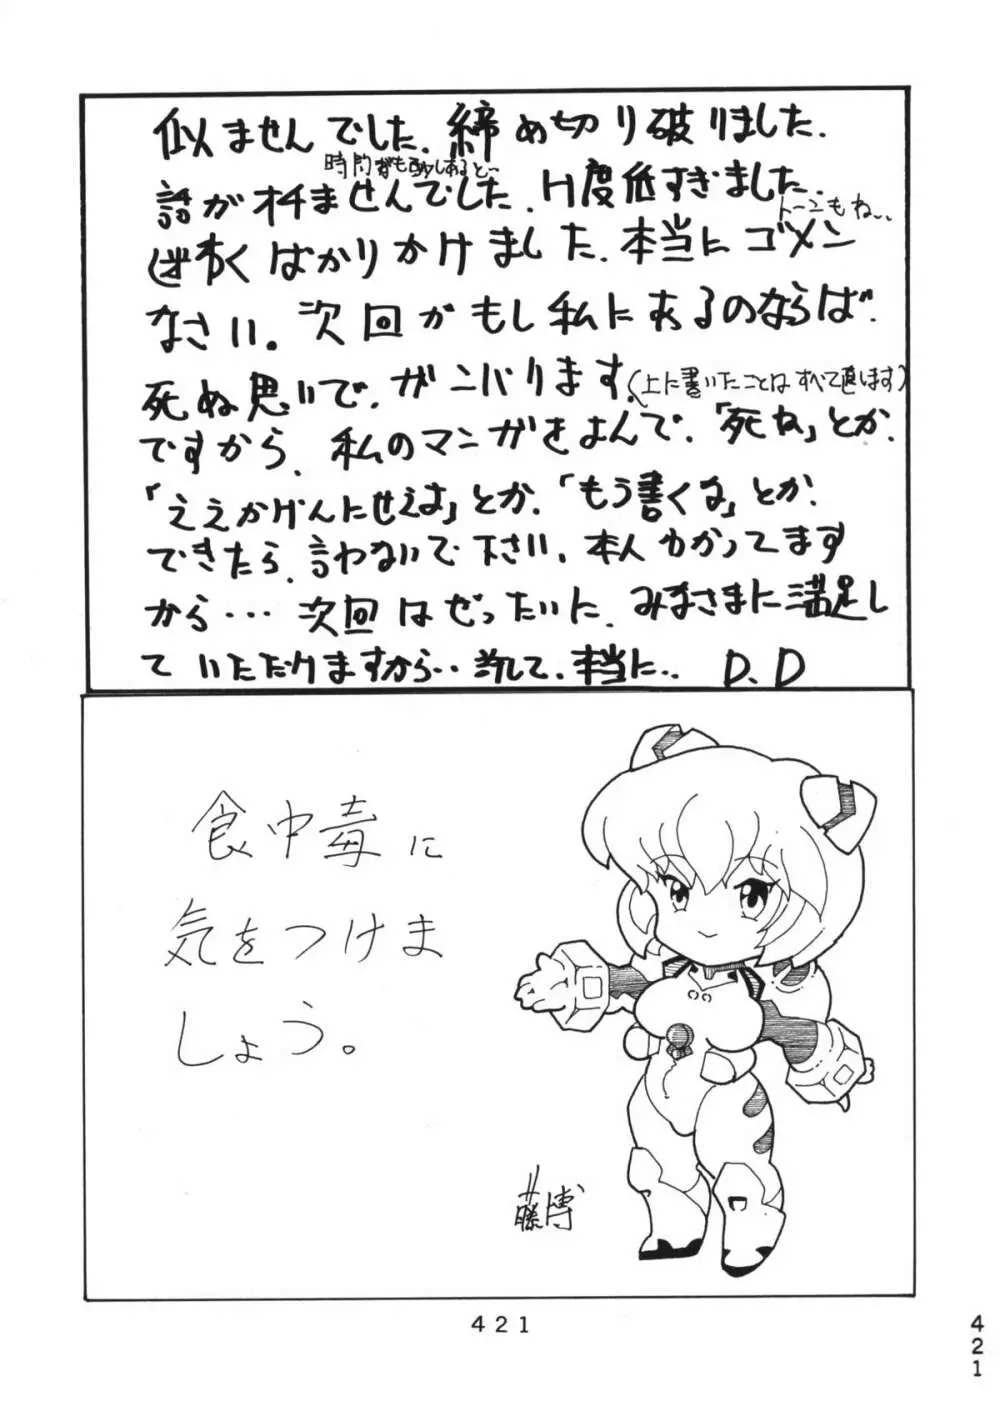 似ませんでした.締め切り破りました.
時間が
話がオチませんでした.H度低すぎました..
トーンもね..
迷わくばかりかけました.本当にゴメン
なさい。次回がもし私にあるのならば.
死ぬ思いで.ガンバります.(上に書いたことはすべて直します)
ですから.私のマンガをよんで.「死ね」とか.
「ええかげんにせえよ」とか.「もう書くな」とか.
できたら.言わないで下さい.本人わかってます
から…次回はぜったいに.みなさまに満足し
ていただけますから..そして.本当に.. D.D
食中毒に
気をつけま
しょう。
藤博
421
421